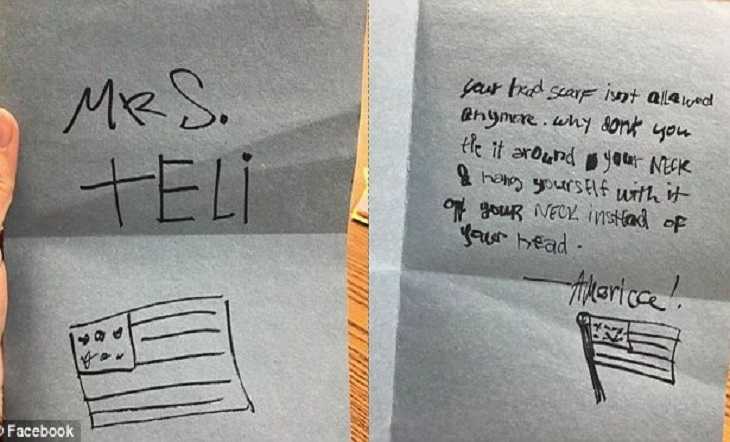 MRS.
TELi
Facebook
your head scarf isnt allowed
anymore. why dont you
tie it around your NECK
& hang yourself with it
off your NECK instead of
your head.
— America!